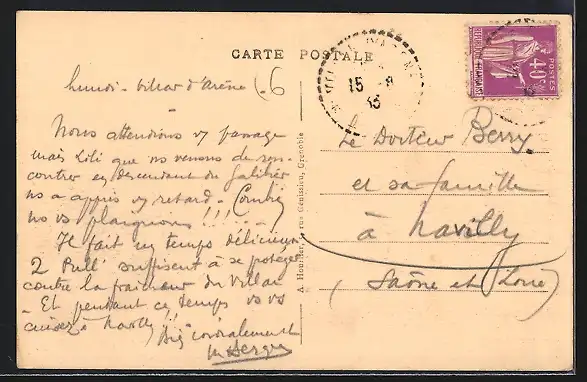 CARTE POSTALE
lundi - Villar d'Arène
Nous attendions vs passage
mais Lili que ns venons de ren-
contrer en descendant du Galibier
ns a appris vs retard. Combien
ns vs plaignons !!!
Il fait un temps délicieux
2 Pull' suffisent à se protéger
contre la fraicheur du Villar
- Et pendant ce temps vs vs
cuisez à Navilly !!
Bien cordialement
15 - 8
35
REPUBLIQUE FRANÇAISE
POSTES
40c
Le Docteur Berry.
et sa famille
à Navilly
(Saône et Loire)
Grenoble